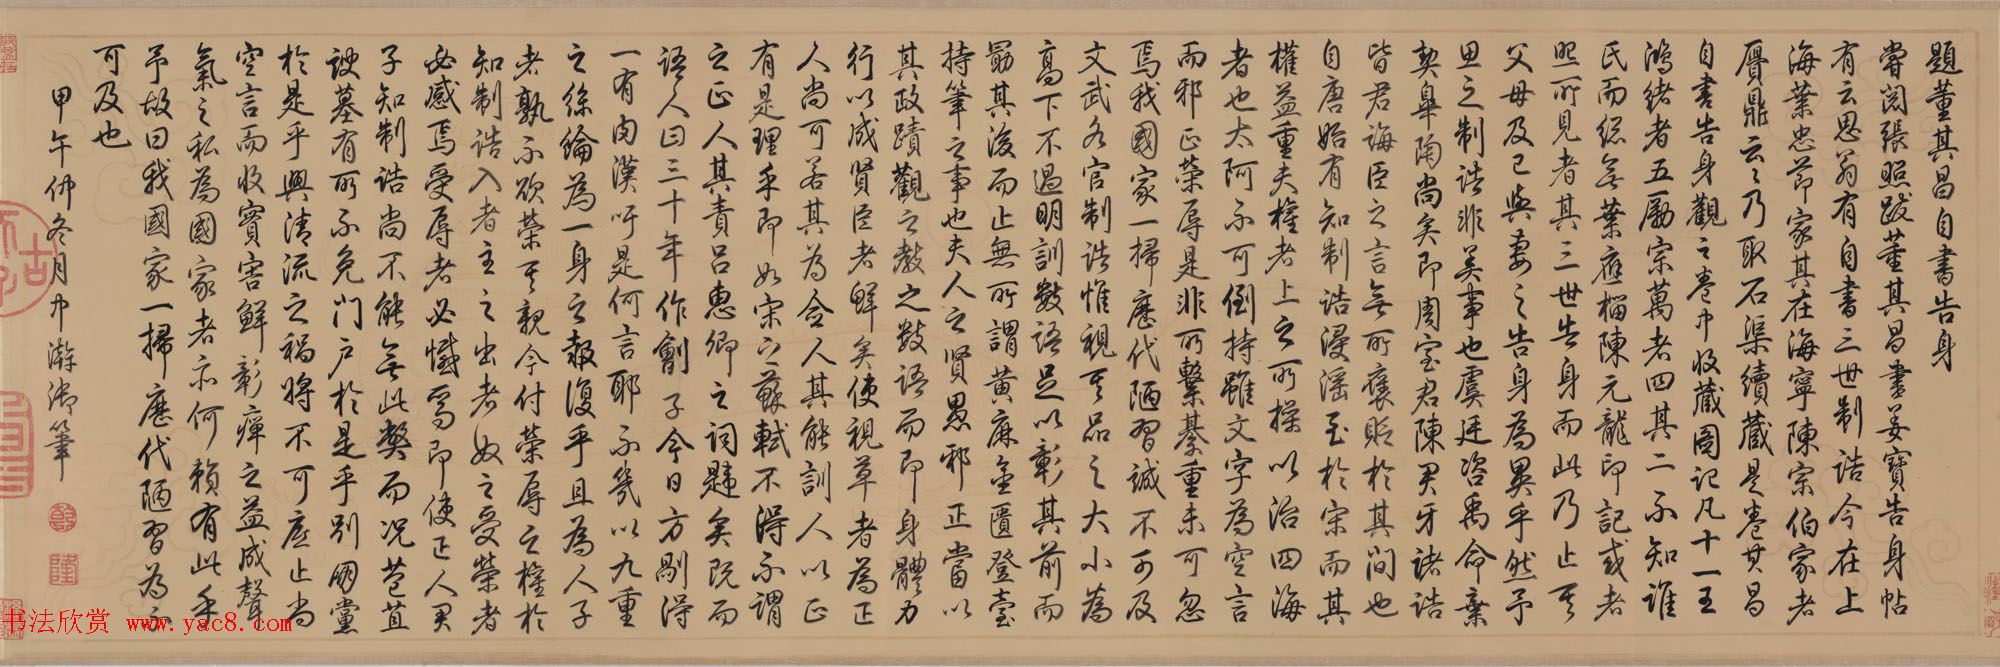 題董其昌自書告身
嘗閱張照跋董其昌書姜寶告身帖
有云思翁有自書三世制誥今在上
海葉忠節家其在海寧陳宗伯家者
贗鼎云云乃取石渠續藏是卷其昌
自書告身觀之卷中收藏圖記凡十一王
鴻緒者五勵宗萬者四其二不知誰
氏而總無葉應榴陳元龍印記或者
照所見者其三世告身而此乃止其
父母及已與妻之告身為異乎然予
思之制誥非美事也虞廷咨禹命棄
契皋陶尚矣即周室君陳君牙諸誥
皆君誨臣之言無所褒貶於其間也
自唐始有知制誥浸滛至於宋而其
權益重夫權者上之所操以治四海
者也太阿不可倒持雖文字為空言
而邪正榮辱是非所繫綦重未可忽
焉我國家一掃歷代陋習誠不可及
文武各官制誥惟視其品之大小為
高下不過明訓數語足以彰其前而
勗其後而止無所謂黃麻金匱登臺
持筆之事也夫人之賢愚邪正當以
其政蹟觀之教之數語而即身體力
行以成賢臣者鮮矣使視草者為正
人尚可若其為僉人其能訓人以正
有是理乎即如宋之蘇軾不得不謂
之正人其責呂惠卿之詞韙矣既而
語人曰三十年作劊子今日方剮得
一有肉漢吁是何言耶不幾以九重
之絲綸為一身之報復乎且為人子
者孰不欲榮其親今付榮辱之權於
知制誥入者主之出者奴之受榮者
必感焉受辱者必憾焉即使正人君
子知制誥尚不能無此獘而况苞苴
諛墓有所不免门户於是乎別朋黨
於是乎興清流之禍將不可底止尚
空言而收實害鮮彰癉之益成聲
氣之私為國家者亦何賴有此乎
予故曰我國家一掃歷代陋習為不
可及也
甲午仲冬月中澣御筆
乾
隆
书法欣赏 www.yac8.com